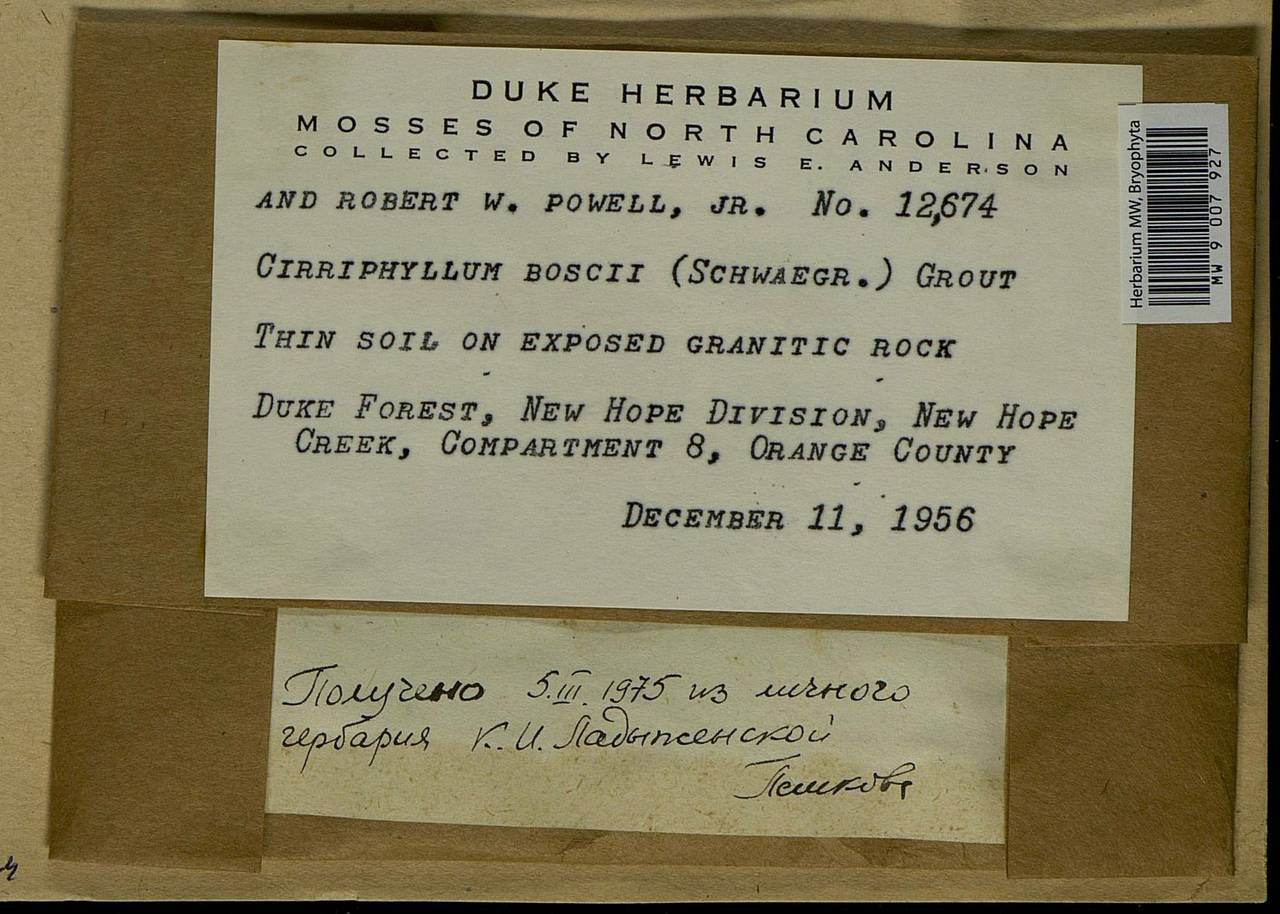 DUKE HERBARIUM
MOSSES OF NORTH CAROLINA
COLLECTED BY LEWIS E. ANDERSON
AND ROBERT W. POWELL, JR. No. 12,674
CIRRIPHYLLUM BOSCII (SCHWAEGR.) GROUT
THIN SOIL ON EXPOSED GRANITIC ROCK
DUKE FOREST, NEW HOPE DIVISION, NEW HOPE
CREEK, COMPARTMENT 8, ORANGE COUNTY
DECEMBER 11, 1956
Herbarium MW, Bryophyta
MW 9 007 927
Получено 5.III.1975 из личного
гербария К.И. Ладыженской